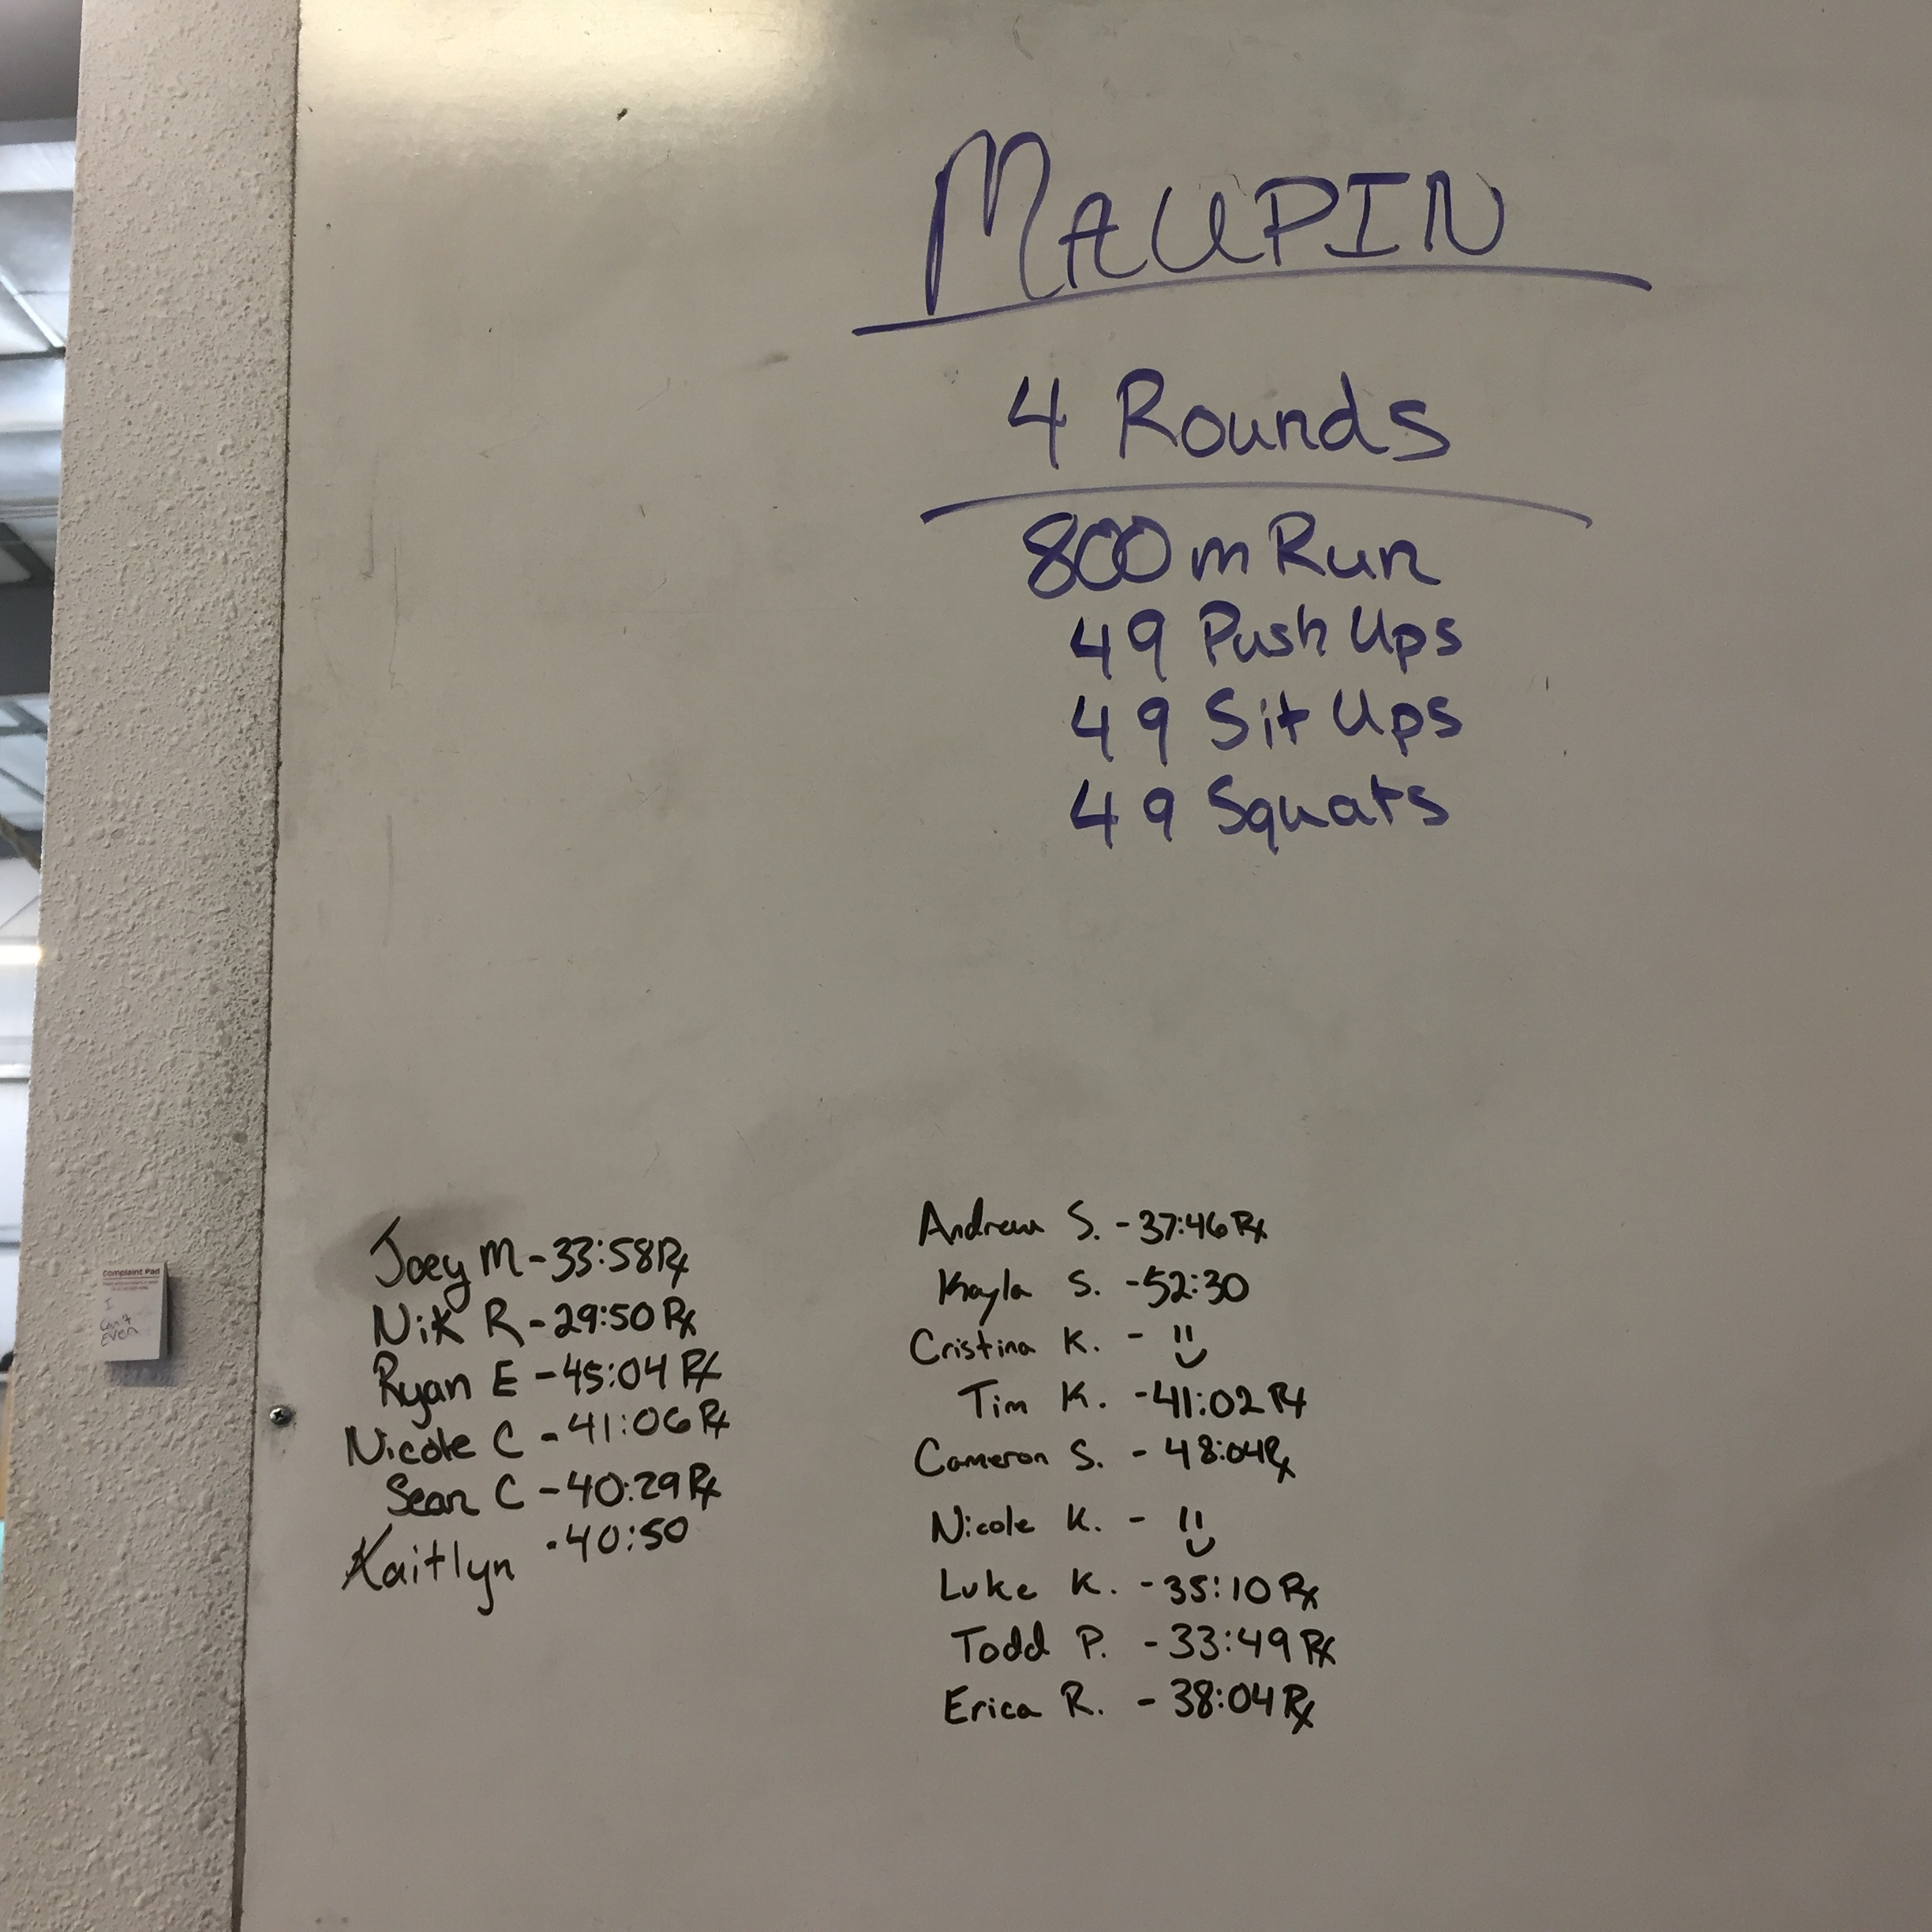 MAUPIN
4 Rounds
800m Run
49 Push Ups
49 Sit Ups
49 Squats
Joey M - 33:58 Rx
Nik R - 29:50 Rx
Ryan E - 45:04 Rx
Nicole C - 41:06 Rx
Sean C - 40:29 Rx
Kaitlyn - 40:50
Andrew S. - 37:46 Rx
Kayla S. - 52:30
Cristina K. -
Tim K. - 41:02 Rx
Cameron S. - 48:04 Rx
Nicole K. -
Luke K. - 35:10 Rx
Todd P. - 33:49 Rx
Erica R. - 38:04 Rx
Complaint Pad
I
Can't
Even